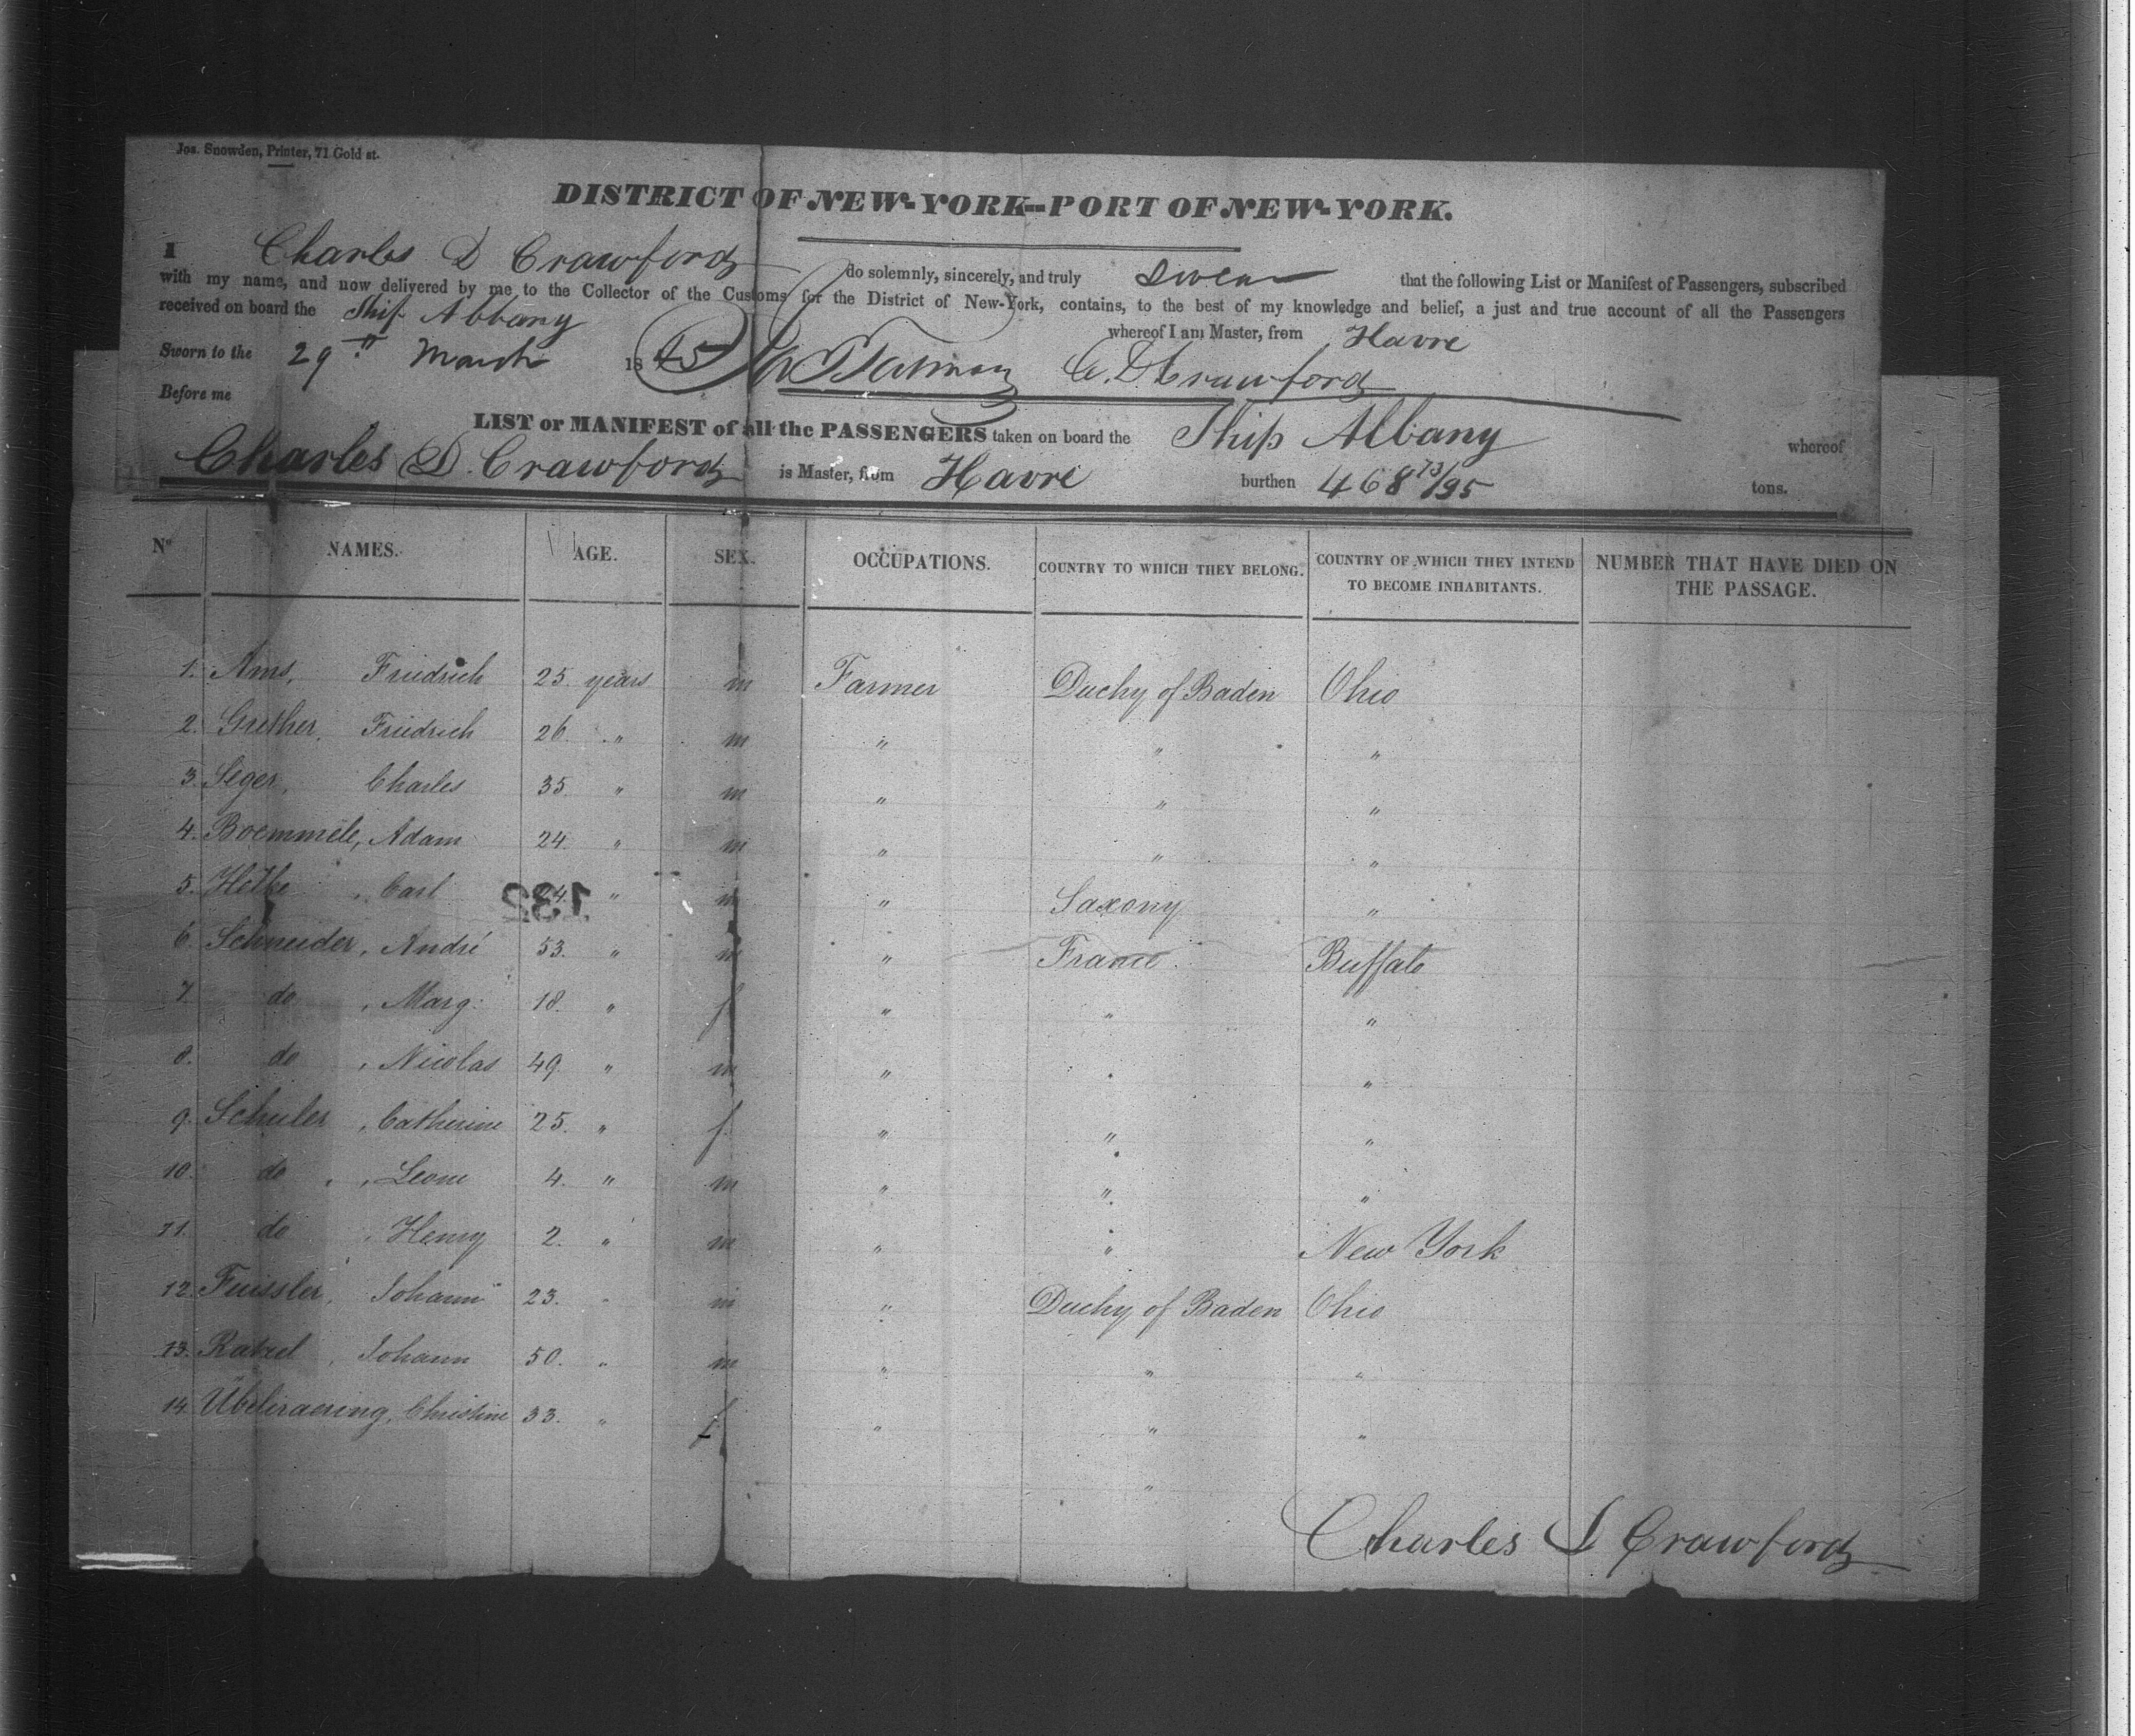 Jos. Snowden, Printer, 71 Gold st.
DISTRICT OF NEW-YORK--PORT OF NEW-YORK.
I Charles D Crawford do solemnly, sincerely, and truly swear that the following List or Manifest of Passengers, subscribed
with my name, and now delivered by me to the Collector of the Customs for the District of New-York, contains, to the best of my knowledge and belief, a just and true account of all the Passengers
received on board the Ship Albany whereof I am Master, from Havre
Sworn to the 29th March 1845 C. D. Crawford
Before me
LIST or MANIFEST of all the PASSENGERS taken on board the Ship Albany whereof
Charles D. Crawford is Master, from Havre burthen 468 73/95 tons.
No NAMES. AGE. SEX. OCCUPATIONS. COUNTRY TO WHICH THEY BELONG. COUNTRY OF WHICH THEY INTEND TO BECOME INHABITANTS. NUMBER THAT HAVE DIED ON THE PASSAGE.
1. Ams, Friedrich 25 years m Farmer Duchy of Baden Ohio
2. Grether, Friedrich 26 " m " " "
3. Seger, Charles 35 " m " " "
4. Boemmele, Adam 24 " m " " "
5. , Carl 24 " m " Saxony "
132
6. Schneider, André 53. " m " France Buffalo
7. do , Marg: 18. " f " " "
8. do , Nicolas 49. " m " " "
9. Schuler , Catherine 25. " f " " "
10. do , Leone 4. " m " " "
11. do , Henry 2. " m " " New York
12. Fuissler, Johann 23. " m " Duchy of Baden Ohio
13. , Johann 50. " m " " "
14. Christine 33. " f " " "
"
Charles D Crawford